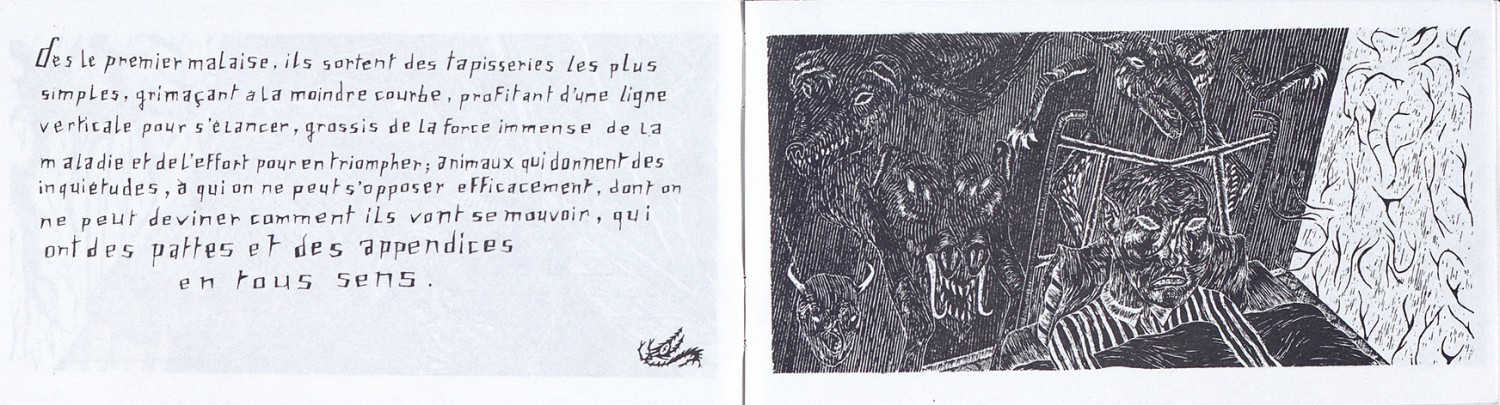 Des le premier malaise, ils sortent des tapisseries les plus
simples, grimaçant a la moindre courbe, profitant d'une ligne
verticale pour s'élancer, grossis de la force immense de la
maladie et de l'effort pour en triompher; animaux qui donnent des
inquiétudes, à qui on ne peut s'opposer efficacement, dont on
ne peut deviner comment ils vont se mouvoir, qui
ont des pattes et des appendices
en tous sens.